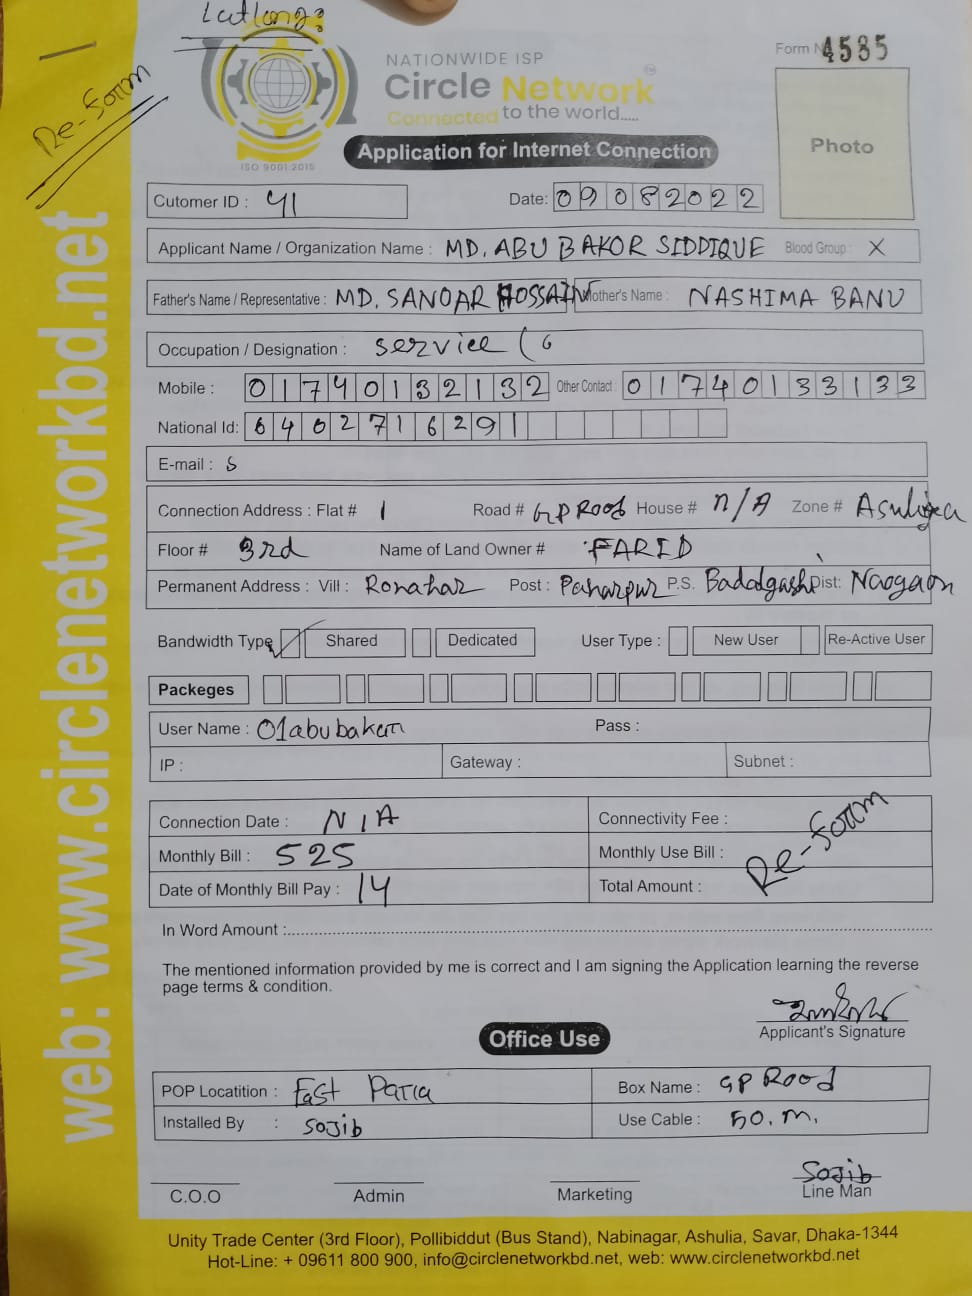 Latlong:
Re-Form
NATIONWIDE ISP
Circle Network
Connected to the world.....
ISO 9001:2015
Form N 4535
Photo
Application for Internet Connection
Cutomer ID : 41
Date: 09082022
Applicant Name / Organization Name : MD. ABU BAKOR SIDDIQUE Blood Group: X
Father's Name / Representative : MD. SANOAR HOSSAIN Mother's Name : NASHIMA BANU
Occupation / Designation : service (
Mobile : 01740132132 Other Contact : 01740133133
National Id: 6402716291
E-mail :
Connection Address : Flat # 1 Road # GP Rood House # n/A Zone # Asuliyea
Floor # 3rd Name of Land Owner # FARID
Permanent Address : Vill : Ronahar Post : Paharpur P.S. Badalgashi Dist: Naogaon
Bandwidth Type Shared Dedicated User Type : New User Re-Active User
Packeges
User Name : 01abubakem Pass :
IP : Gateway : Subnet :
Connection Date : N/A Connectivity Fee :
Monthly Bill : 525 Monthly Use Bill :
Date of Monthly Bill Pay : 14 Total Amount :
Re-Form
In Word Amount :
The mentioned information provided by me is correct and I am signing the Application learning the reverse
page terms & condition.
Applicant's Signature
Office Use
POP Locatition : East Para Box Name : GP Rood
Installed By : Sojib Use Cable : 50.m.
Sojib
C.O.O Admin Marketing Line Man
Unity Trade Center (3rd Floor), Pollibiddut (Bus Stand), Nabinagar, Ashulia, Savar, Dhaka-1344
Hot-Line: + 09611 800 900, info@circlenetworkbd.net, web: www.circlenetworkbd.net
web: www.circlenetworkbd.net